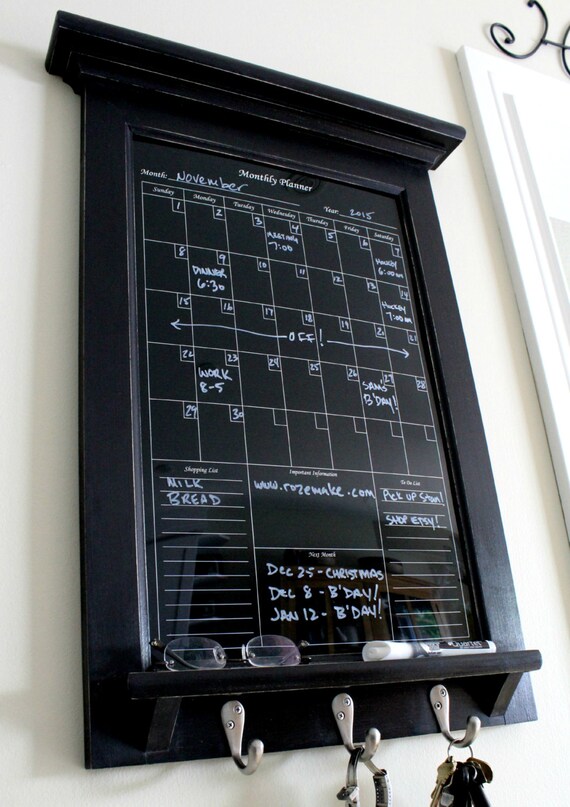 Monthly Planner
Month: November
Year 2015
Sunday Monday Tuesday Wednesday Thursday Friday Saturday
1 2 3 4 5 6 7
MEETING
-7:00
HOCKEY
6:00am
8 9 10 11 12 13 14
DINNER
6:30
HOCKEY
7:00am
15 16 17 18 19 20 21
OFF!
22 23 24 25 26 27 28
WORK
8-5
SAM'S
B'DAY!
29 30
Shopping List
MILK
BREAD
Important Information
www.rozemake.com
To Do List
Pick up Stan!
SHOP ETSY!
Next Month
DEC 25 - CHRISTMAS
DEC 8 - B'DAY!
JAN 12 - B'DAY!
Quartet